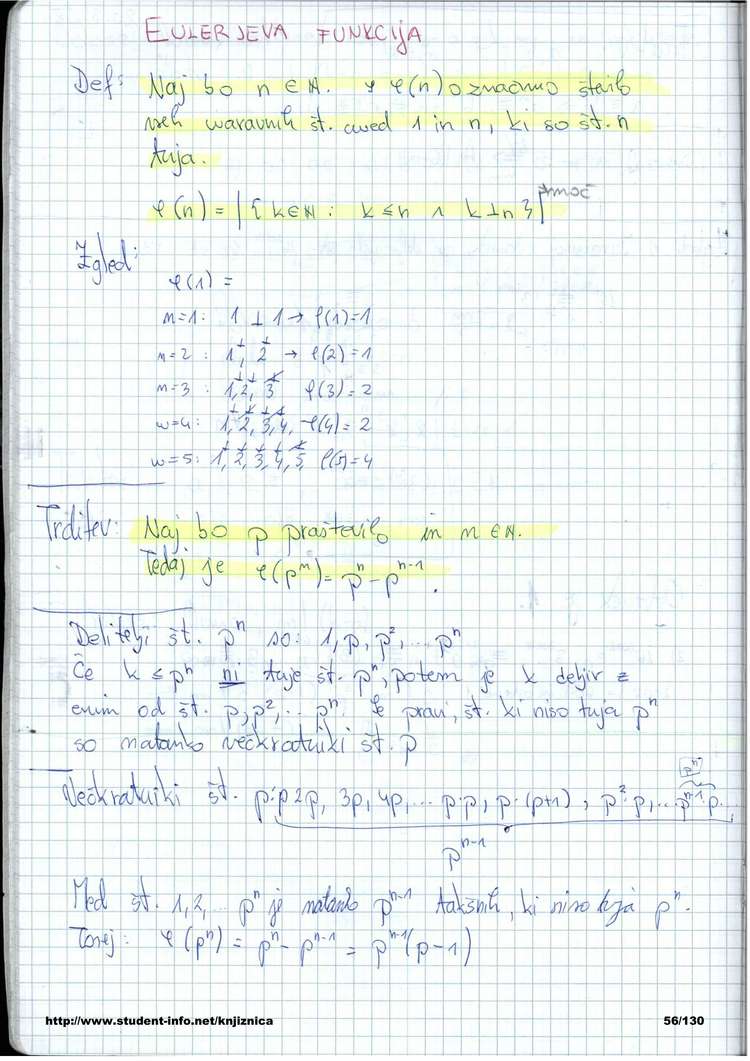 EULERJEVA FUNKCIJA
Def: Naj bo n ∈ ℕ. S φ(n) označimo število
vseh naravnih št. med 1 in n, ki so št. n
tuja.
φ(n) = |{k∈ℕ : k ≤ n ∧ k ⊥ n}| moč
Zgled:
φ(1) =
n=1: 1 ⊥ 1 → φ(1)=1
n=2: 1, 2 → φ(2)=1
n=3: 1, 2, 3 φ(3)=2
n=4: 1, 2, 3, 4, φ(4)=2
n=5: 1, 2, 3, 4, 5 φ(5)=4
Trditev: Naj bo p praštevilo in n ∈ ℕ.
Tedaj je φ(pⁿ) = pⁿ - pⁿ⁻¹.
Delitelji št. pⁿ so: 1, p, p², ... pⁿ
Če k ≤ pⁿ ni tuje št. pⁿ, potem je k deljiv z
enim od št. p, p², ... pⁿ. Se pravi, št. ki niso tuja pⁿ
so natanko večkratniki št. p
Večkratniki št. p: p 2p, 3p, 4p, ... p·p, p·(p+1), p²·p, ... pⁿ⁻¹·p
pⁿ
pⁿ⁻¹
Med št. 1, 2, ... pⁿ je natanko pⁿ⁻¹ takšnih, ki niso tuja pⁿ.
Torej: φ(pⁿ) = pⁿ - pⁿ⁻¹ = pⁿ⁻¹(p-1)
http://www.student-info.net/knjiznica
56/130